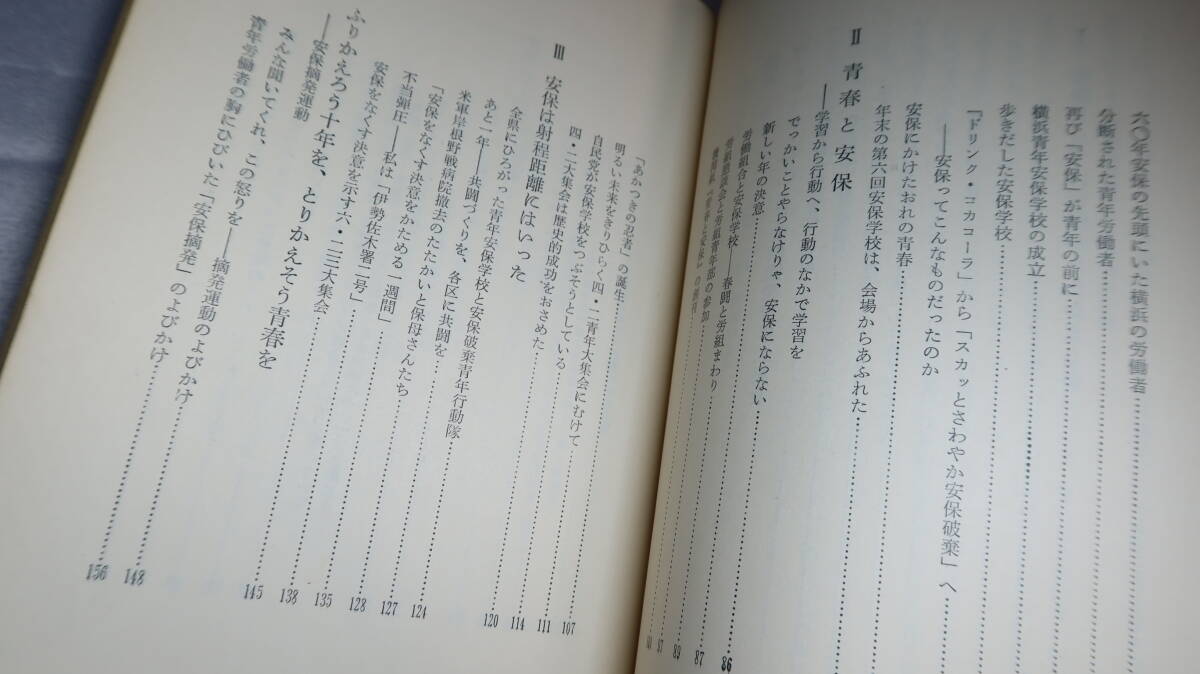 六〇年安保の先頭にいた横浜の労働者
分断された青年労働者
再び「安保」が青年の前に
横浜青年安保学校の成立
歩きだした安保学校
『ドリンク・コカコーラ」から「スカッとさわやか安保破棄」へ
——安保ってこんなものだったのか
安保にかけたおれの青春
年末の第六回安保学校は、会場からあふれた
Ⅱ 青春と安保
——学習から行動へ、行動のなかで学習を
でっかいことやらなけりゃ、安保にならない
新しい年の決意 86
労働組合と安保学校——春闘と労組まわり 87
労組懇談会と労組青年部の参加 89
「青春と安保』の創刊
「あかつきの忍者」の誕生
明るい未来をきりひらく四・二青年大集会にむけて 107
自民党が安保学校をつぶそうとしている 111
四・二大集会は歴史的成功をおさめた 114
Ⅲ 安保は射程距離にはいった
全県にひろがった青年安保学校と安保破棄青年行動隊 120
あと一年——共闘づくりを、各区に共闘を 124
米軍岸根野戦病院撤去のたたかいと保母さんたち 127
「安保をなくす決意をかためる一週間」 128
不当弾圧——私は「伊勢佐木署二号」 135
安保をなくす決意を示す六・二三大集会 138
ふりかえろう十年を、とりかえそう青春を 145
——安保摘発運動
みんな聞いてくれ、この怒りを——摘発運動のよびかけ 148
青年労働者の胸にひびいた「安保摘発」のよびかけ 156